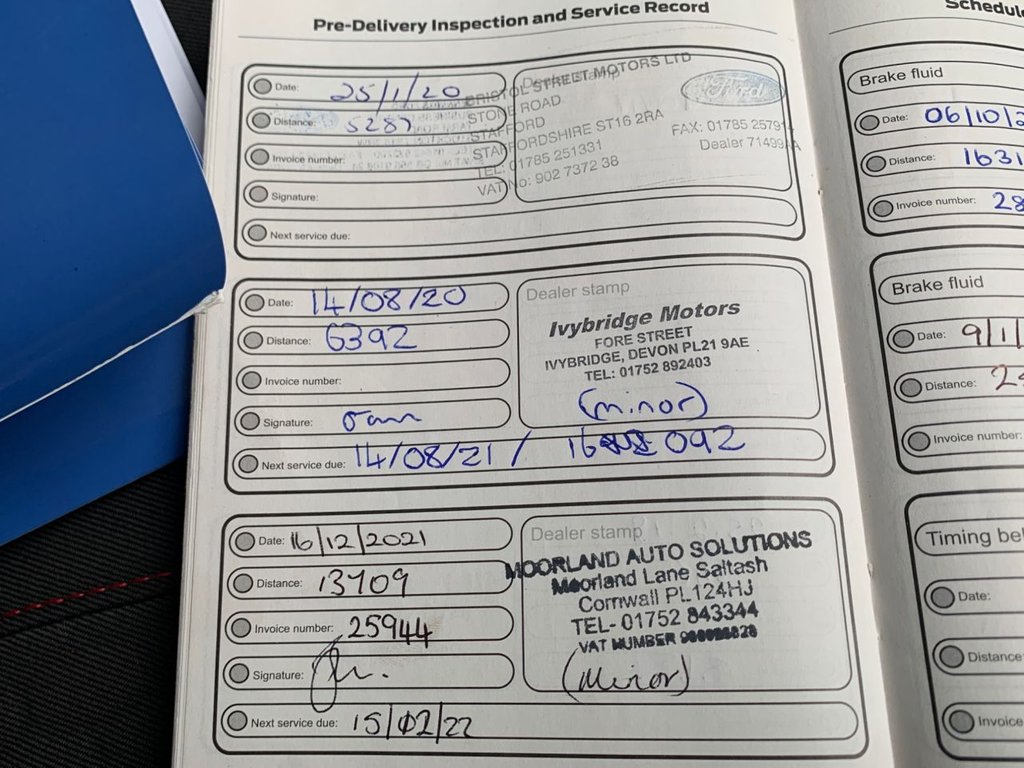 Pre-Delivery Inspection and Service Record
Date: 25/1/20
Distance: 5287
Invoice number:
Signature:
Next service due:
Dealer stamp
BRISTOL STREET MOTORS LTD
STONE ROAD
STAFFORD
STAFFORDSHIRE ST16 2RA
TEL: 01785 251331
VAT No: 902 7372 38
Ford
FAX: 01785 257914
Dealer 71499AA
Date: 14/08/20
Distance: 6392
Invoice number:
Signature:
Next service due: 14/08/21 / 16 092
Dealer stamp
Ivybridge Motors
FORE STREET
IVYBRIDGE, DEVON PL21 9AE
TEL: 01752 892403
(minor)
Date: 16/12/2021
Distance: 13709
Invoice number: 25944
Signature:
Next service due: 15/02/22
Dealer stamp
MOORLAND AUTO SOLUTIONS
Moorland Lane Saltash
Cornwall PL124HJ
TEL- 01752 843344
VAT NUMBER
(Minor)
Schedul
Brake fluid
Date: 06/10/2
Distance: 1631
Invoice number: 28
Brake fluid
Date: 9/1/
Distance: 2
Invoice number:
Timing be
Date:
Distance
Invoice